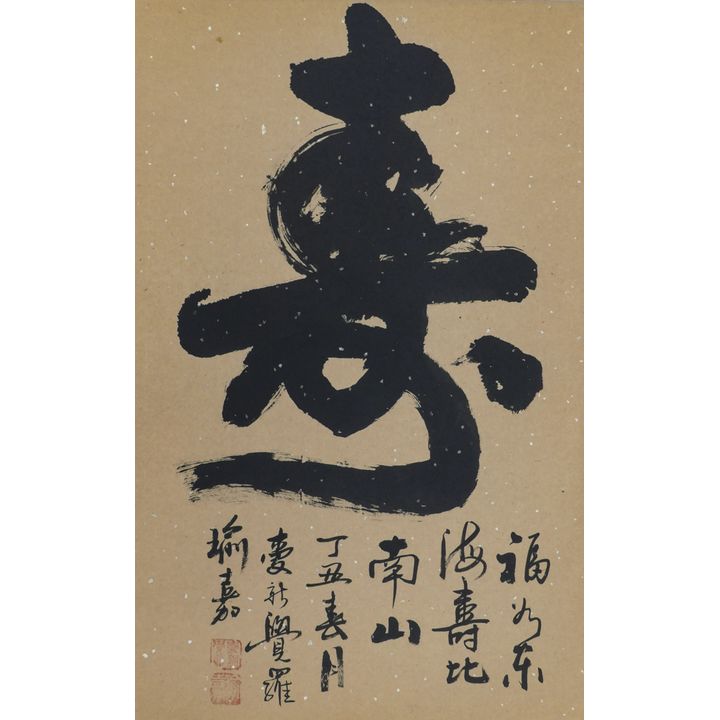 寿
福如东
海壽比
南山
丁丑春月
愛新覺羅
瑜嘉